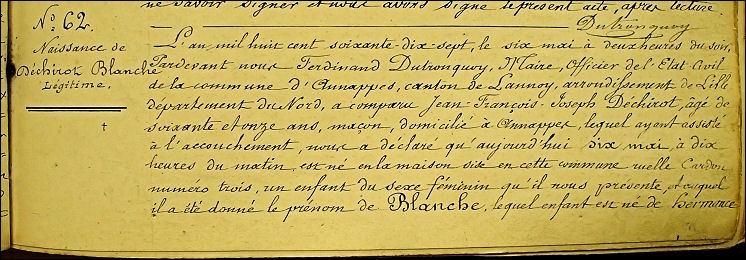 ne savoir signer et nous avons signé le présent acte, après lecture
Dutronquoy
N° 62.
Naissance de
Déchirot Blanche
Légitime.
L'an mil huit cent soixante-dix-sept, le six mai à deux heures du soir,
Pardevant nous Ferdinand Dutronquoy, Maire, Officier de l'Etat-Civil
de la commune d'Annappes, canton de Lannoy, arrondissement de Lille
département du Nord, a comparu Jean-François-Joseph Déchirot, âgé de
soixante et onze ans, maçon, domicilié à Annappes, lequel ayant assisté
à l'accouchement, nous a déclaré qu'aujourd'hui six mai, à dix
heures du matin, est né en la maison sise en cette commune ruelle Cardon
numéro trois, un enfant du sexe féminin qu'il nous présente et auquel
il a été donné le prénom de Blanche, lequel enfant est né de Hermance